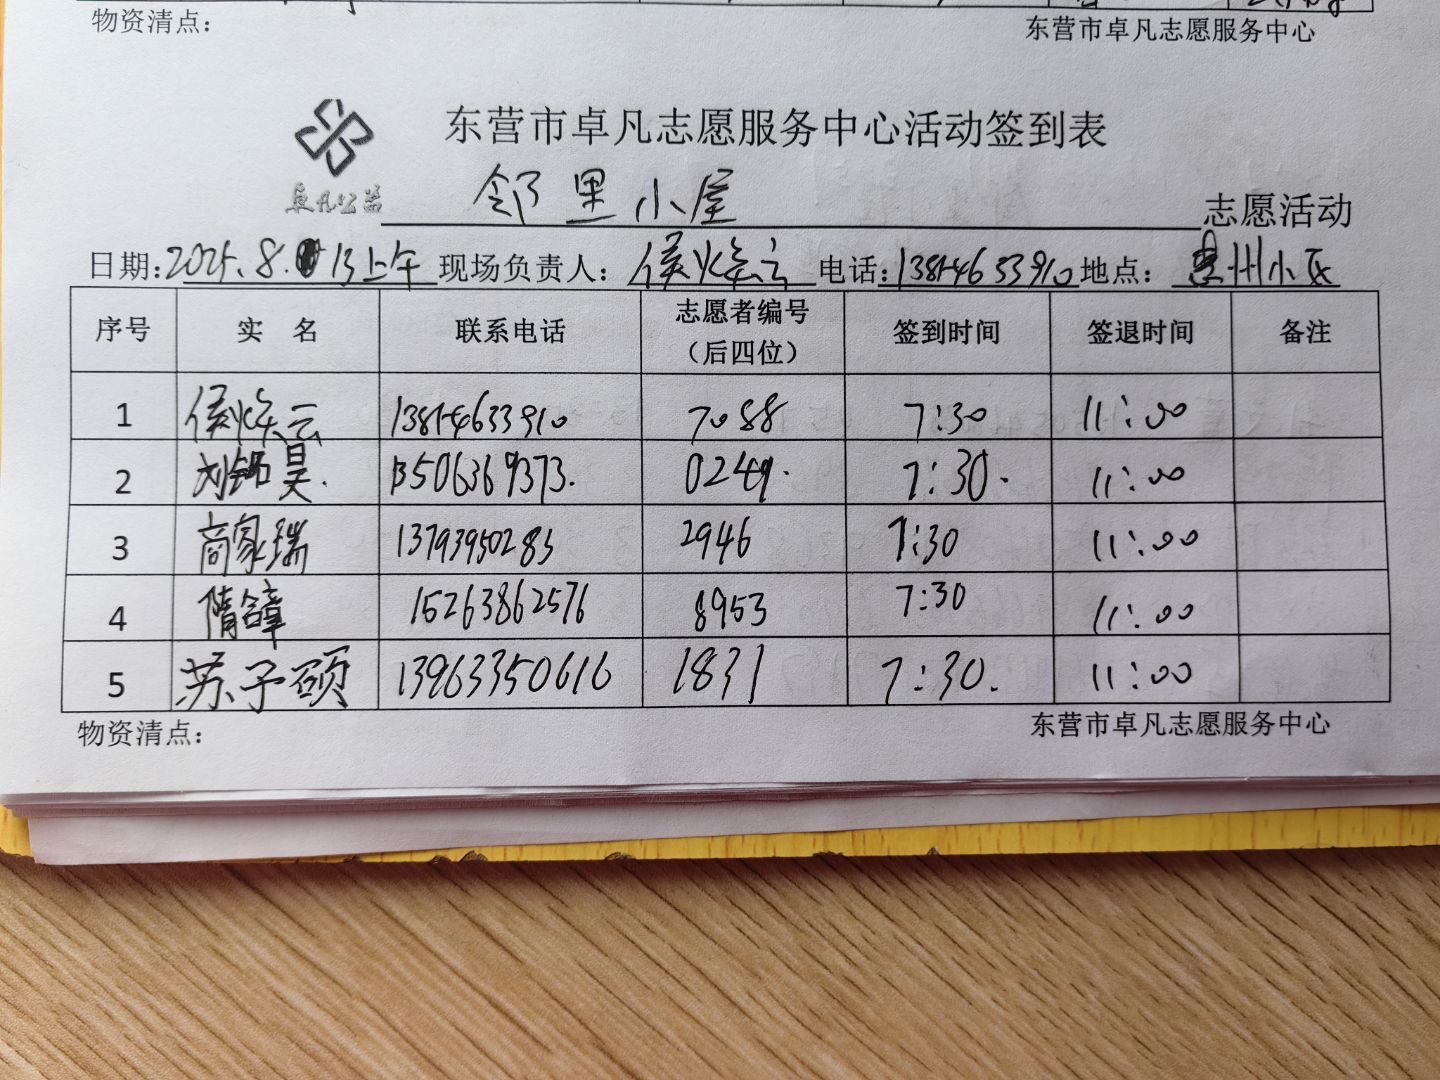 物资清点：
东营市卓凡志愿服务中心
东营市卓凡志愿服务中心活动签到表
卓凡公益
邻里小屋 志愿活动
日期：2025.8.13上午 现场负责人：侯焕云 电话：13854633910 地点：惠州小区
序号 实 名 联系电话 志愿者编号（后四位） 签到时间 签退时间 备注
1 侯焕云 13854633910 7088 7:30 11:00
2 刘铭昊. 13506369373. 0249. 7:30. 11:00
3 商家瑞 13793950283 2946 7:30 11:00
4 隋 15263862576 8953 7:30 11:00
5 苏子硕 13963350616 1831 7:30. 11:00
物资清点：
东营市卓凡志愿服务中心